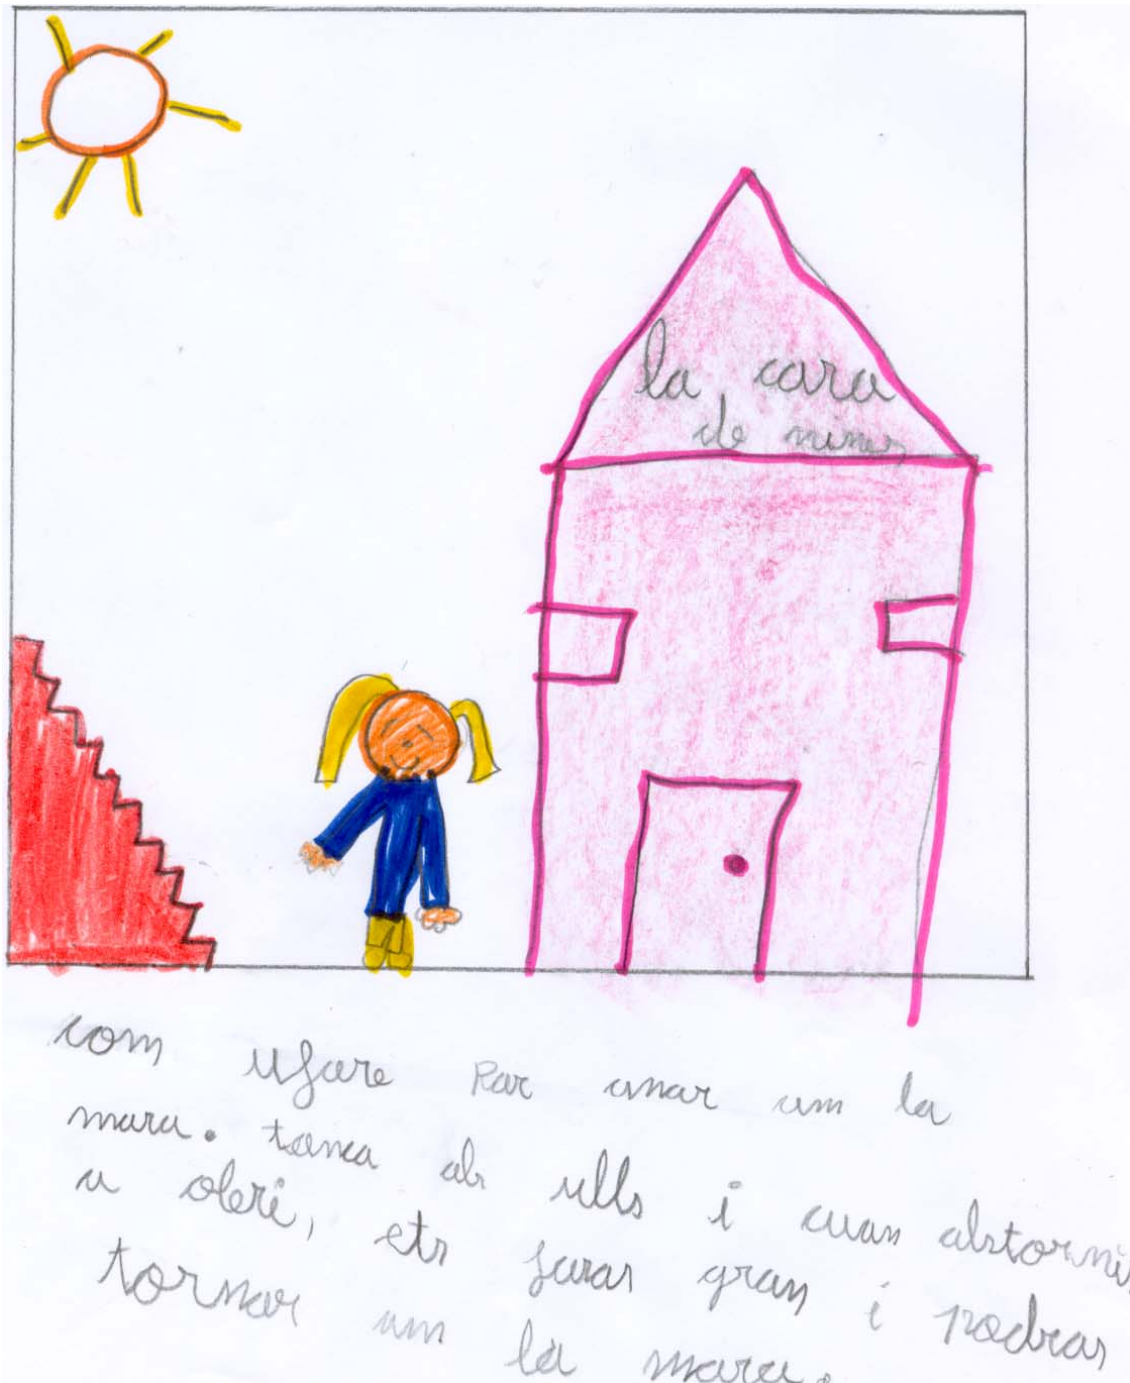 la casa
de nines
com ufare Par anar am la
mara. tanca als ulls i cuan alstornis
a obri, ets faras gran i podras
tornar am la mara.